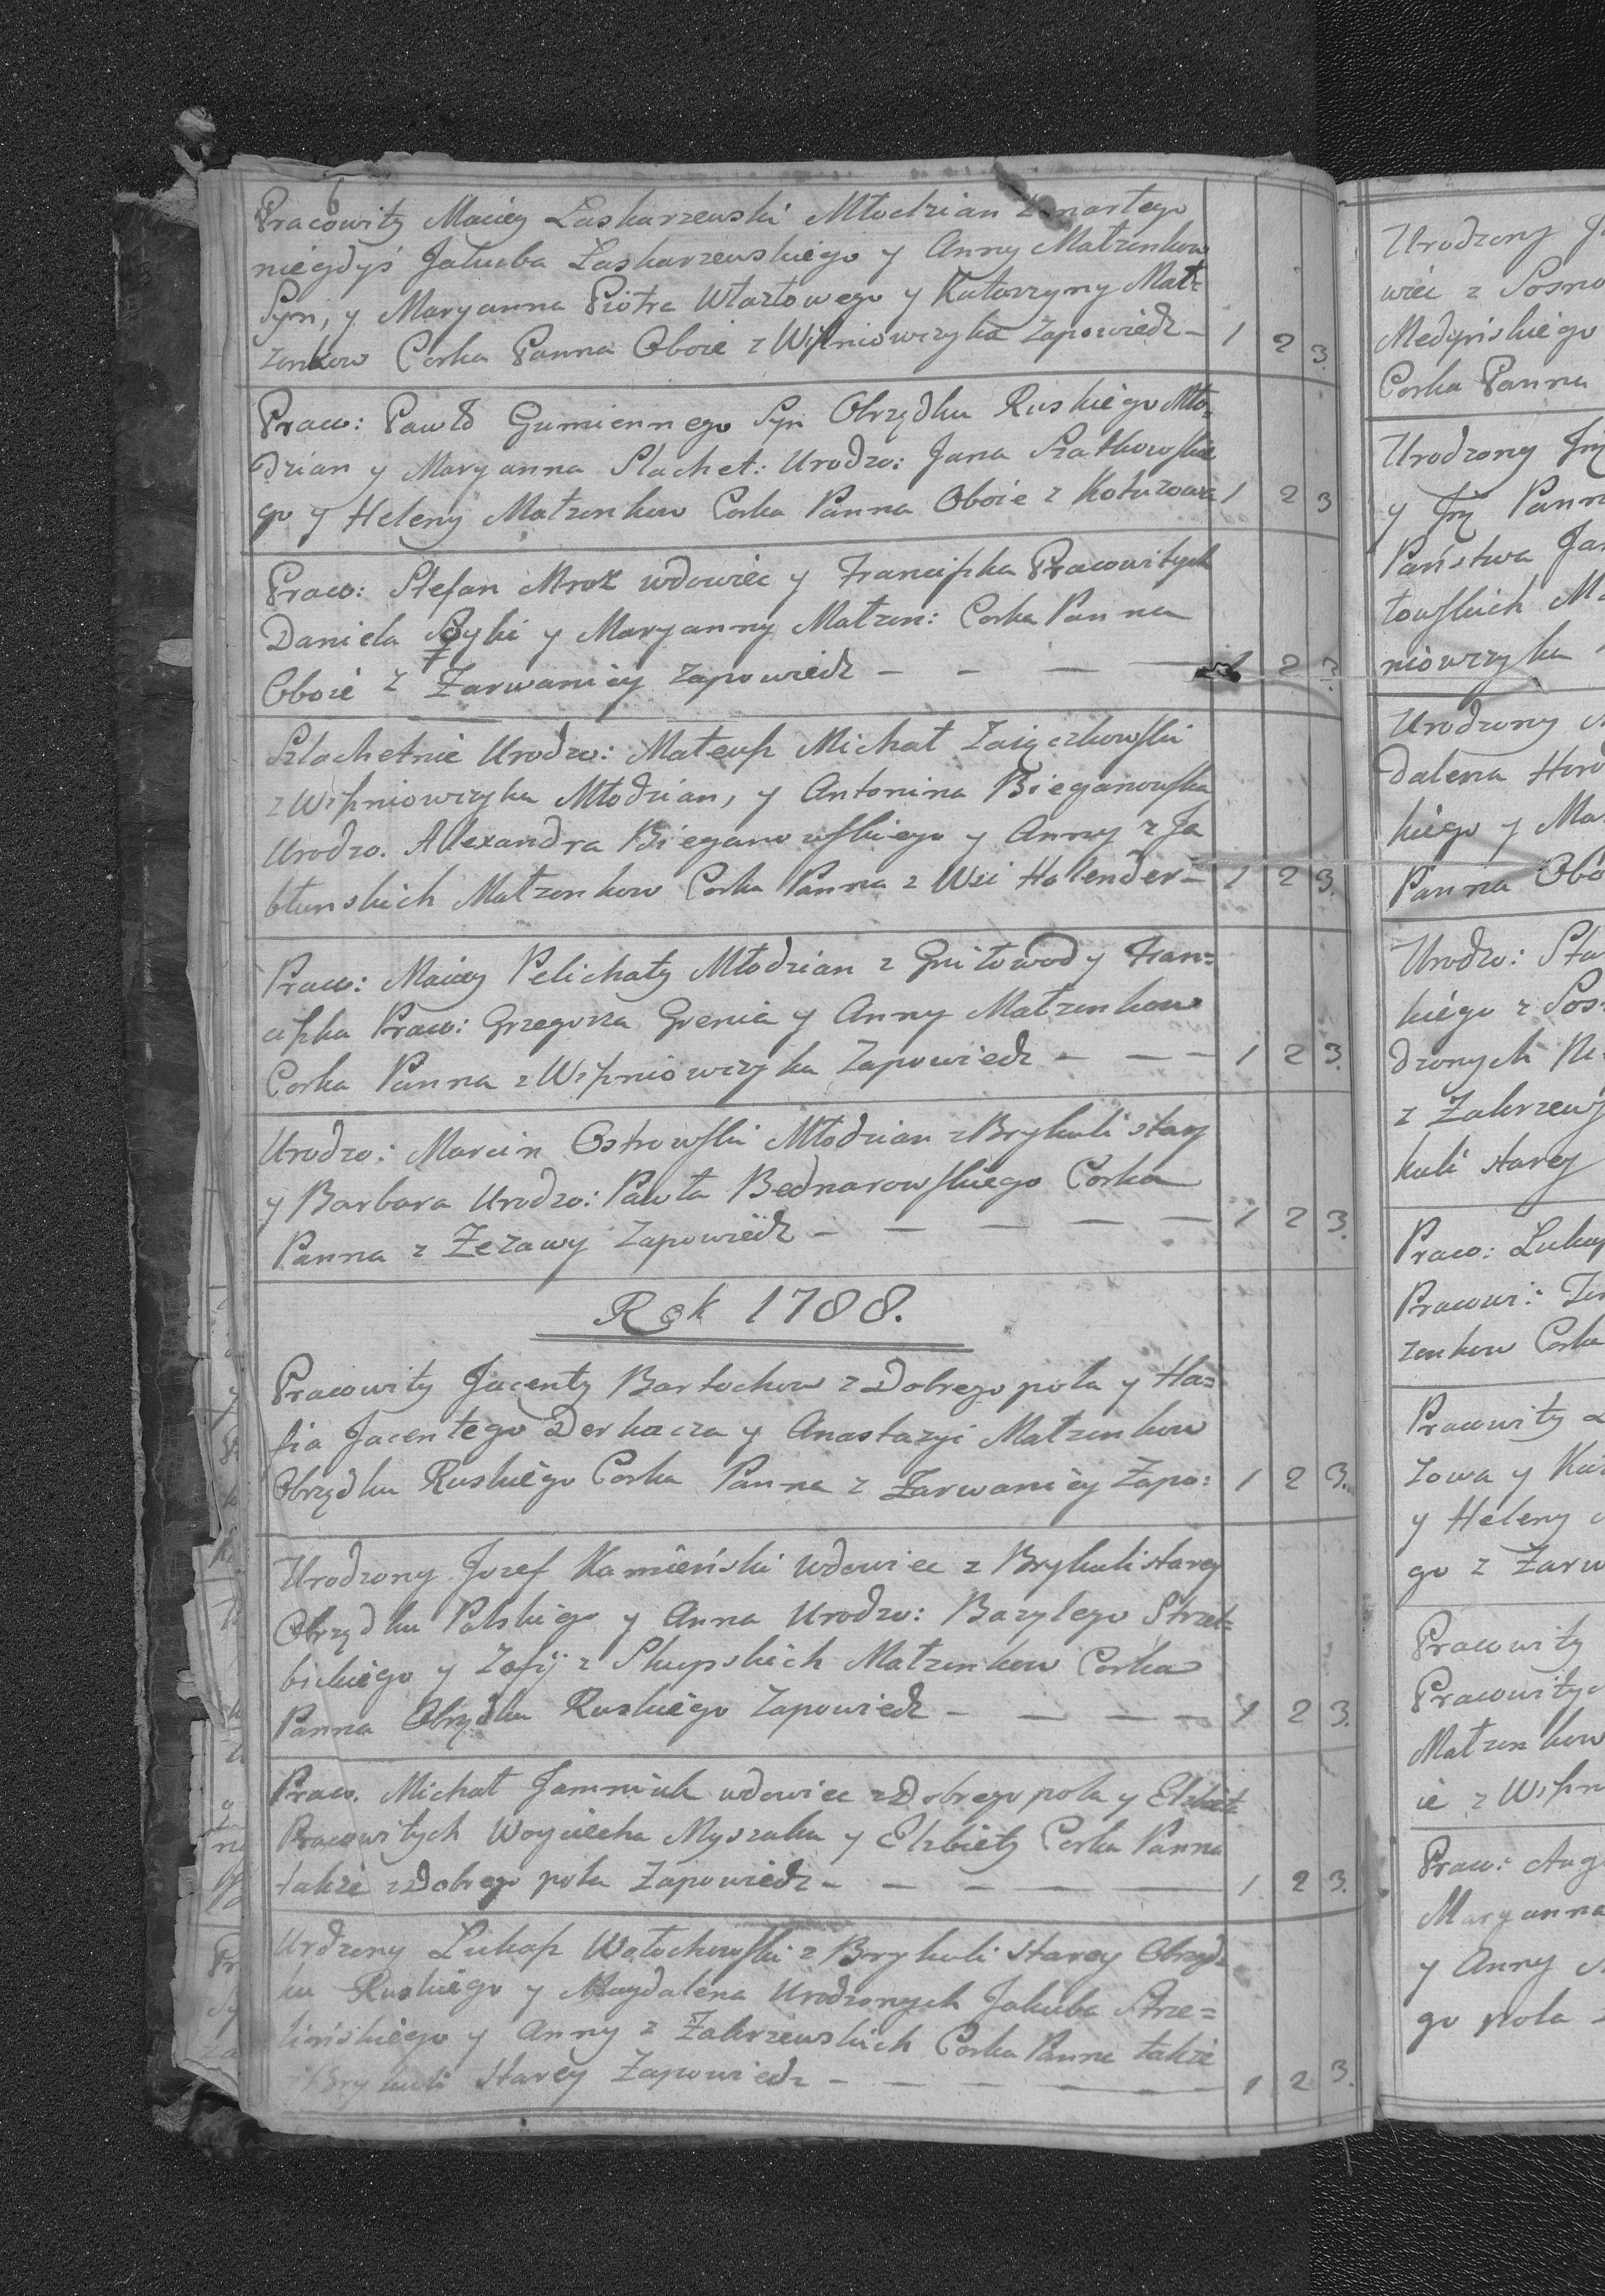 6
Pracowity Maciey Laskarzewski Młodzian Zmarłego
niegdyś Jakuba Laskarzewskiego y Anny Małzonkow
Syn, y Maryanna Piotra Wtaztowego y Katarzyny Małz=
zonkow Corka Panna Oboie z Wiszniowczyka Zapowiedz — 1 2 3.
Praco: Pawło Gumiennego Syn Obrządku Ruskiego Mło=
dzian y Maryanna Slachet: Urodzo: Jana Szatkowskie
go y Heleny Małzonkow Corka Panna Oboie z Kotuzowa 1 2 3
Praco: Stefan Mroz wdowiec y Franciszka Pracowitych
Daniela y Maryanny Małzon: Corka Panna
Oboie z Zarwanicy Zapowiedz — — — — 1 2 3
Szlachetnie Urodzo: Mateusz Michał Zaiączkowski
z Wiszniowczyka Młodzian, y Antonina Bieganowska
Urodzo. Alexandra Bieganowskiego y Anny z Ja
błunskich Małzonkow Corka Panna z Wsi Holender — 1 2 3.
Praco: Maciey Pelichaty Młodzian z Gniłowod y Fran=
ciszka Praco: Grzegorza Grenia y Anny Małzonkow
Corka Panna z Wiszniowczyka Zapowiedz — — — 1 2 3.
Urodzo: Marcin Ostrowski Młodzian z Brykuli stary
y Barbara Urodzo: Pawła Bednarowskiego Corka
Panna z Zezawy Zapowiedz — — — — — 1 2 3.
Rok 1788.
Pracowity Jacenty Bartochow z Dobrego pola y Ha=
sia Jacentego Derkacza y Anastazyi Małzonkow
Obrządku Ruskiego Corka Panna z Zarwanicy Zapo: 1 2 3.
Urodzony Jozef Kamieński wdowiec z Brykuli starey
Obrządku Polskiego y Anna Urodzo: Bazylego Strzel=
bickiego y Zofij z Skupskich Małzonkow Corka
Panna Obrządku Ruskiego Zapowiedz — — — — 1 2 3.
Praco. Michał Jamniuk wdowiec z Dobrego pola y Elzbieta
Pracowitych Woyciecha Myszaka y Elzbiety Corka Panna
takze z Dobrego pola Zapowiedz — — — — — 1 2 3.
Urdzony Lukasz Wołochowski z Brykuli starey Obrząd=
ku Ruskiego y Magdalena Urodzonych Jakuba Strze=
lińskiego y Anny z Zakrzewskich Corka Panna takze
Brykuli Starey Zapowiedz — — — — — 1 2 3.
Urodzony
wiec z Sosno
Medyńskiego
Corka Panna
Urodzony
y Panna
Państwa Jan
towskich
niowczyka
Urodzony
dalena
kiego y
Panna Obo
Urodzo:
kiego z
dzonych
z Zakrzews
kuli starey
Praco:
Pracowi:
zonkow Corka
Pracowity
zowa y
y Heleny
go z Zarw
Pracowity
Pracowityc
Małzonkow
ie z Wiszn
Praco: Aug
Maryanna
y Anny
go pola